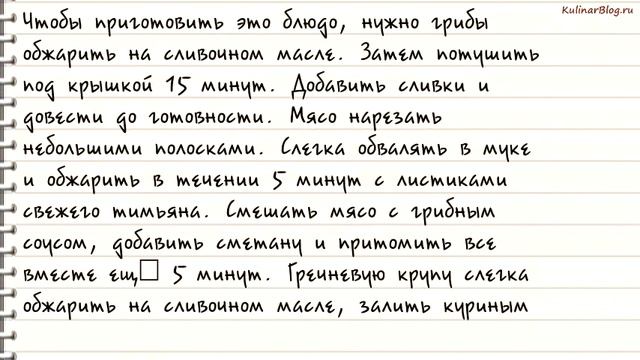 KulinarBlog.ru
Чтобы приготовить это блюдо, нужно грибы
обжарить на сливочном масле. Затем потушить
под крышкой 15 минут. Добавить сливки и
довести до готовности. Мясо нарезать
небольшими полосками. Слегка обвалять в муке
и обжарить в течении 5 минут с листиками
свежего тимьяна. Смешать мясо с грибным
соусом, добавить сметану и притомить все
вместе ещ□ 5 минут. Гречневую крупу слегка
обжарить на сливочном масле, залить куриным